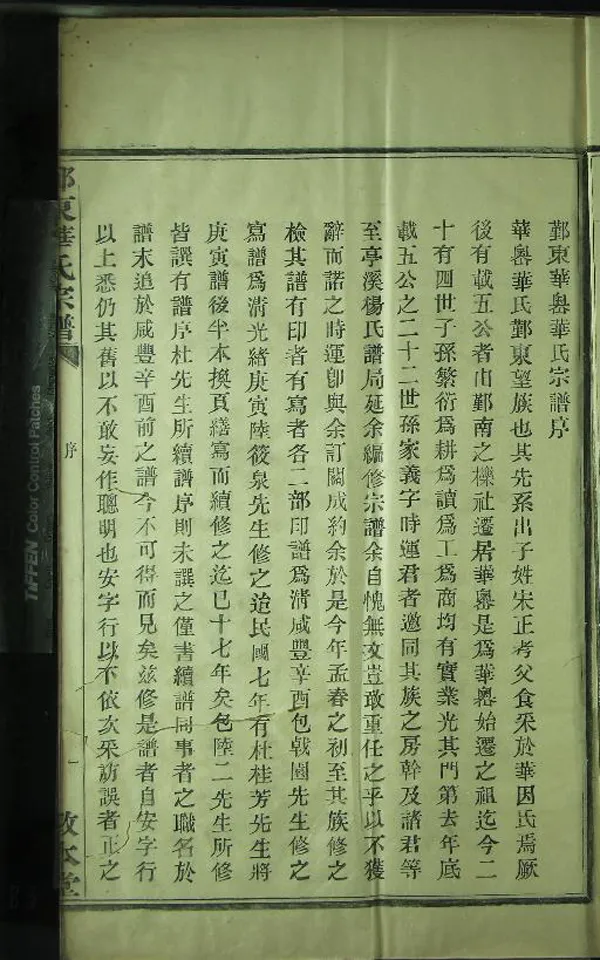 鄞東華嶴華氏宗譜序
華嶴華氏鄞東望族也其先系出子姓宋正考父食采於華因氏焉厥
後有載五公者由鄞南之櫟社遷居華嶴是爲華嶴始遷之祖迄今二
十有四世子孫繁衍爲耕爲讀爲工爲商均有實業光其門第去年底
載五公之二十二世孫家義字時運君者邀同其族之房幹及諸君等
至亭溪楊氏譜局延余編修宗譜余自愧無文豈敢重任之乎以不獲
辭而諾之時運卽與余訂關成約余於是今年孟春之初至其族修之
檢其譜有印者有寫者各二部印譜爲清咸豐辛酉包戟園先生修之
寫譜爲清光緒庚寅陸筱泉先生修之迨民國七年有杜桂芳先生將
庚寅譜後半本換頁繕寫而續修之迄已十七年矣包陸二先生所修
皆譔有譜序杜先生所續譜序則未譔之僅書續譜同事者之職名於
譜末追於咸豐辛酉前之譜今不可得而見矣茲修是譜者自安字行
以上悉仍其舊以不敢妄作聰明也安字行以下依次采訪誤者正之
鄞東華氏宗譜
序
一
敦本堂
TIFFEN Color Control Patches